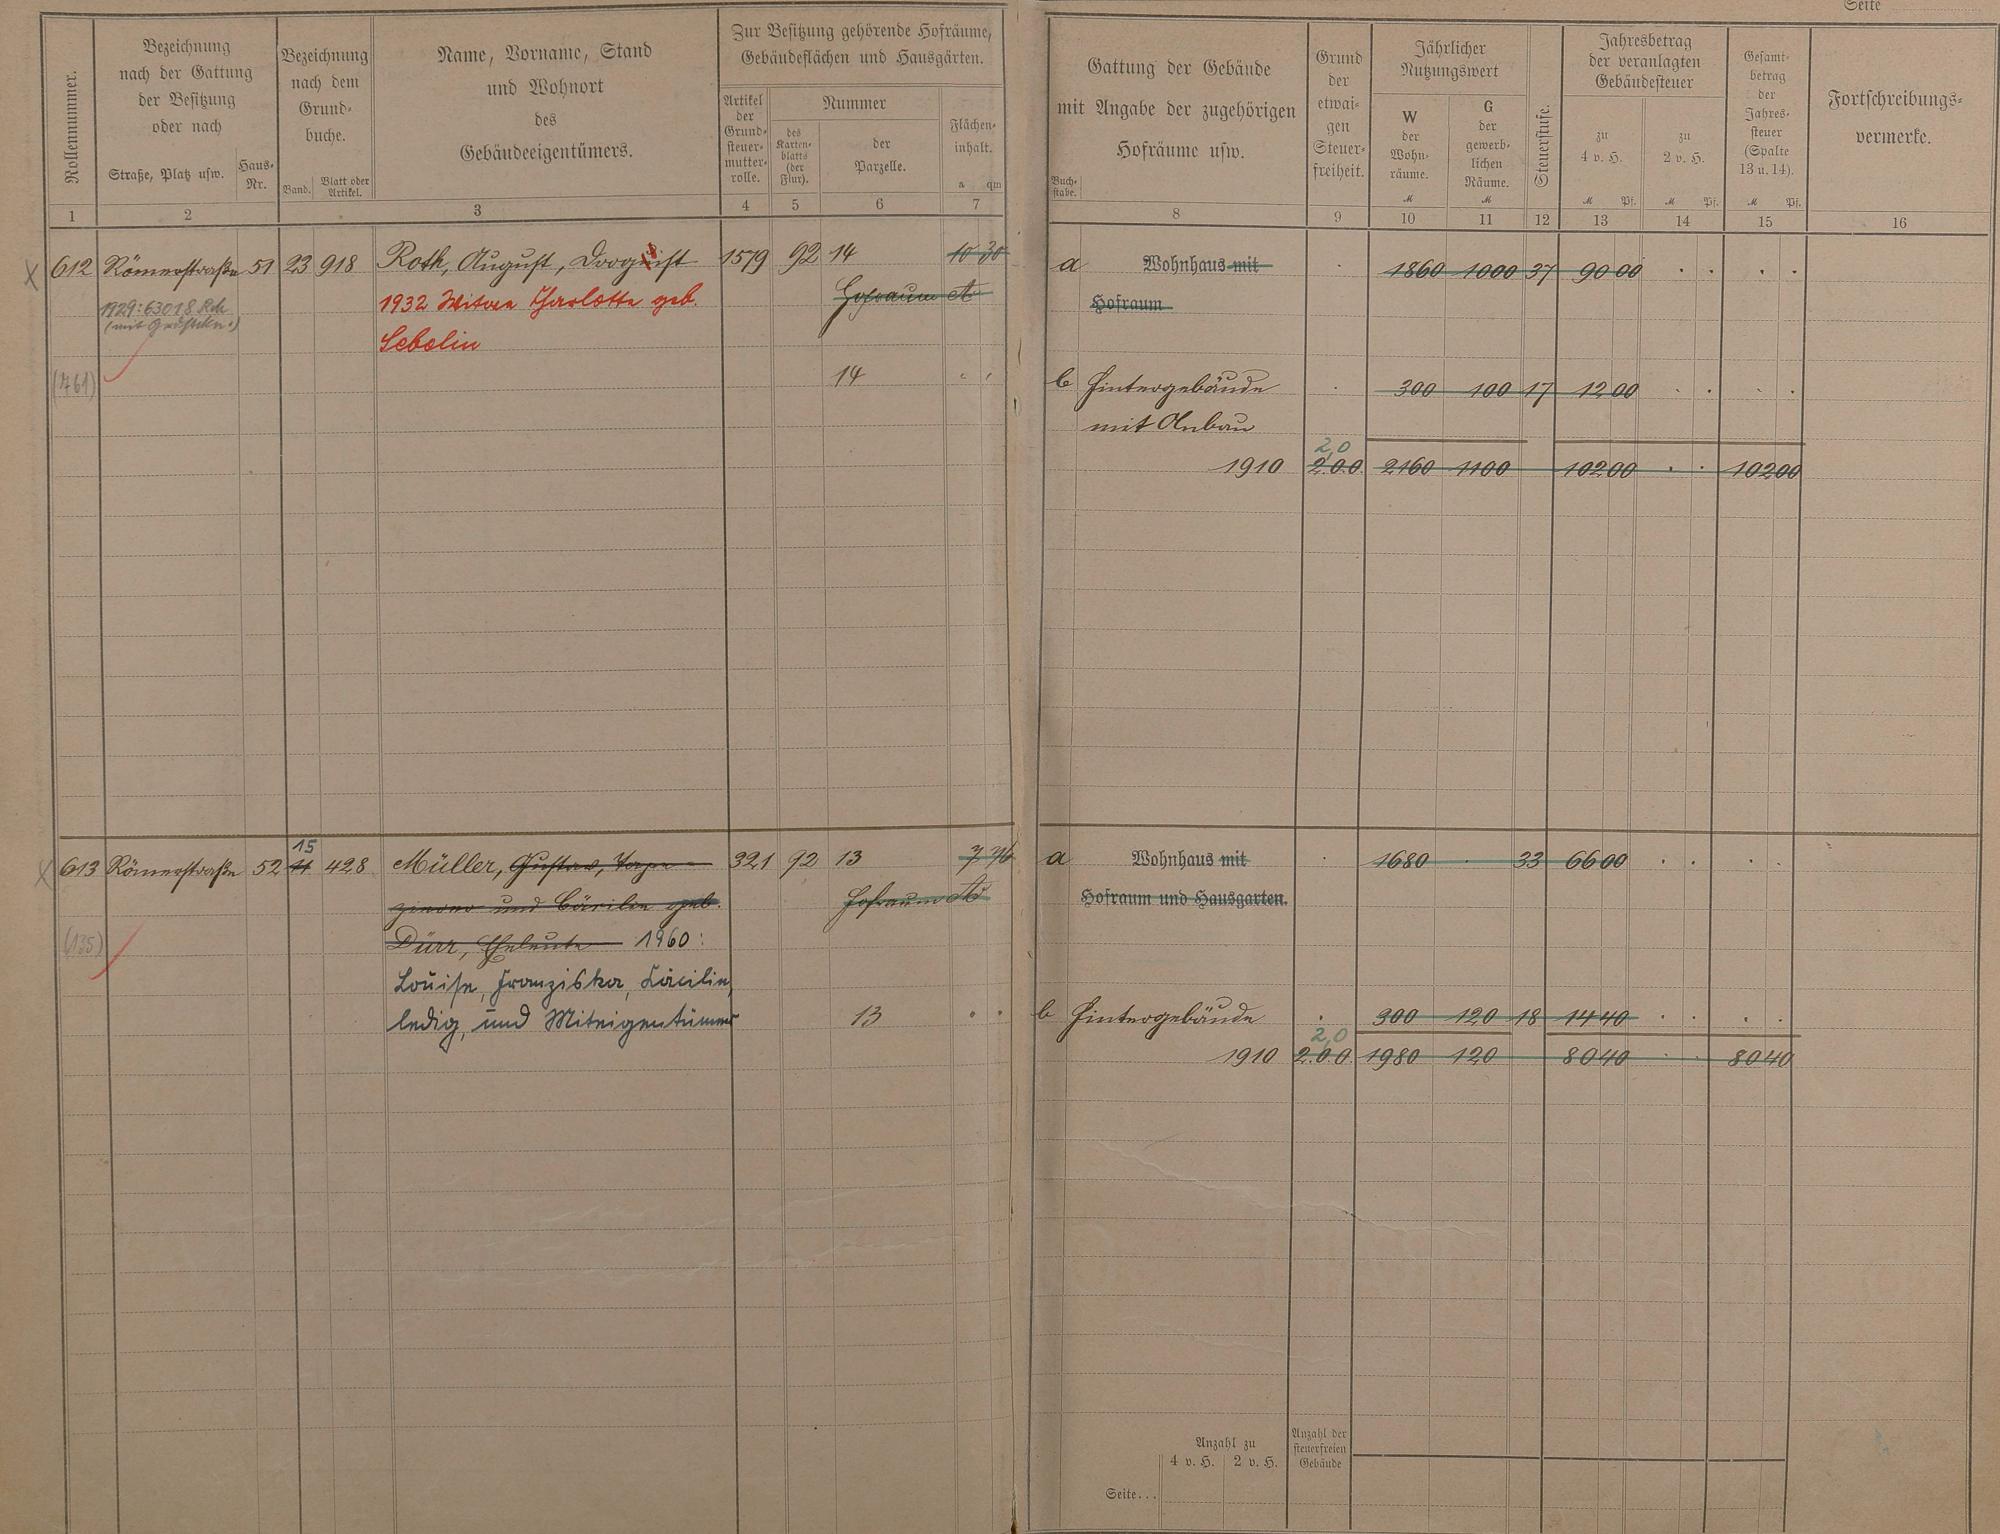 Seite
Rollennummer.
Bezeichnung
nach der Gattung
der Besitzung
oder nach
Straße, Platz usw.
Haus-
Nr.
Bezeichnung
nach dem
Grund-
buche.
Band.
Blatt oder
Artikel.
Name, Vorname, Stand
und Wohnort
des
Gebäudeeigentümers.
Zur Besitzung gehörende Hofräume,
Gebäudeflächen und Hausgärten.
Artikel
der
Grund-
steuer-
mutter-
rolle.
Nummer
des
Karten-
blatts
(der
Flur).
der
Parzelle.
Flächen-
inhalt.
a qm
Gattung der Gebäude
mit Angabe der zugehörigen
Hofräume usw.
Buch-
stabe.
Grund
der
etwai-
gen
Steuer-
freiheit.
Jährlicher
Nutzungswert
W
der
Wohn-
räume.
M
G
der
gewerb-
lichen
Räume.
M
Steuerstufe.
Jahresbetrag
der veranlagten
Gebäudesteuer
zu
4 v. H.
M Pf.
zu
2 v. H.
M Pf.
Gesamt-
betrag
der
Jahres-
steuer
(Spalte
13 u. 14).
M Pf.
Fortschreibungs-
vermerke.
1 2 3 4 5 6 7 8 9 10 11 12 13 14 15 16
612 Römerstraße 51 23 918 Roth, August, Drogist 1579 92 14 10 30 a Wohnhaus mit 1860 1000 37 90 00
1929: 63018 Rck
1932 Witwe Charlotte geb. Hofraum Hofraum
Sebolin
(761) 14 b Hintergebäude 300 100 17 12 00
mit Anbau
2,0
1910 2.00. 2160 1100 102 00 102 00
15
613 Römerstraße 52 11 428 Müller, Gustav, Tape- 321 92 13 7 76 a Wohnhaus mit 1680 33 66 00
zierer und Cäcilie geb. Hofraum Hofraum und Hausgarten.
(135) Dürr, Eheleute 1960:
Louise, Franziska, Cäcilie,
ledig, und Miteigentümer 13 b Hintergebäude 300 120 18 14 40
2,0
1910 2.00. 1980 120 80 40 80 40
Anzahl zu
4 v. H. 2 v. H.
Anzahl der
steuerfreien
Gebäude
Seite...